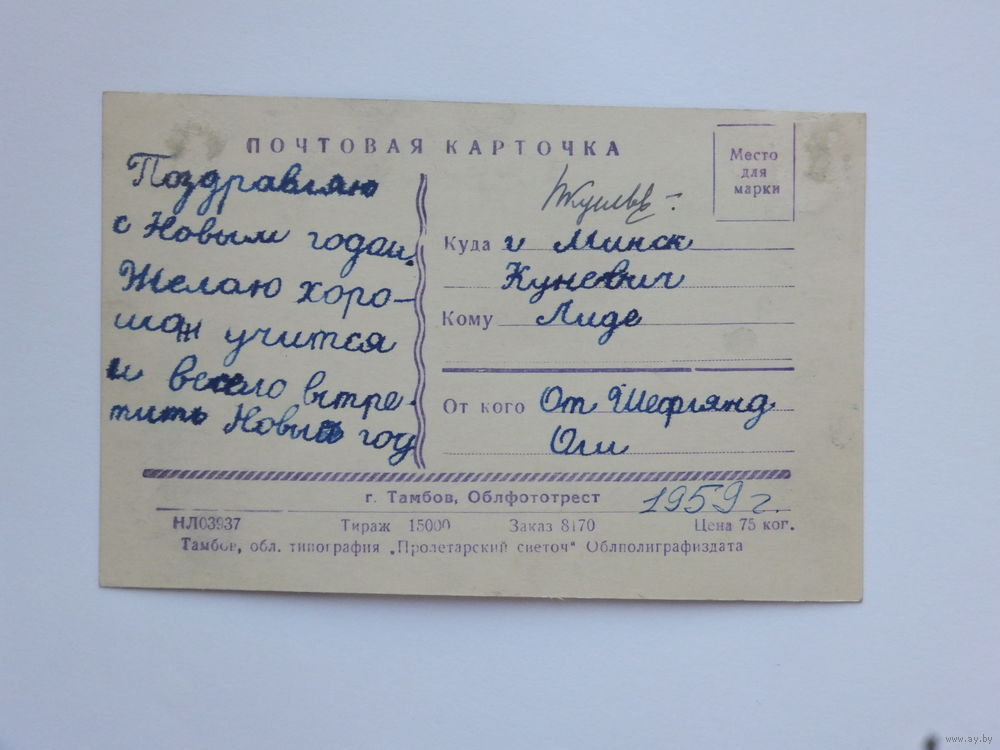 ПОЧТОВАЯ КАРТОЧКА
Место
для
марки
Поздравляю
с Новым годом.
Желаю хоро-
шо учится
и весело встре-
тить Новый год
Куда г Минск
Куневич
Кому Лиде
От кого От Шефлянд
Оли
г. Тамбов, Облфототрест
1959 г.
НЛ03937 Тираж 15000 Заказ 8170 Цена 75 коп.
Тамбов, обл. типография „Пролетарский светоч" Облполиграфиздата
www.ay.by